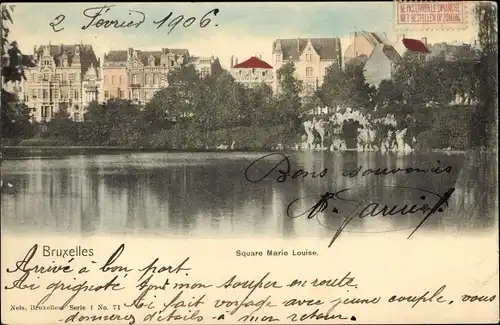 2 Février 1906.
NE PAS LIVRER LE DIMANCHE
NIET BESTELLEN OP ZONDAG
Bons souvenirs
Bruxelles
Square Marie Louise.
Arrivé à bon port.
Ai grignoté tout mon souper en route.
Nels, Bruxelles, Serie 1 No. 71
Ai fait voyage avec jeune couple, vous
donnerez détails à mon retour.